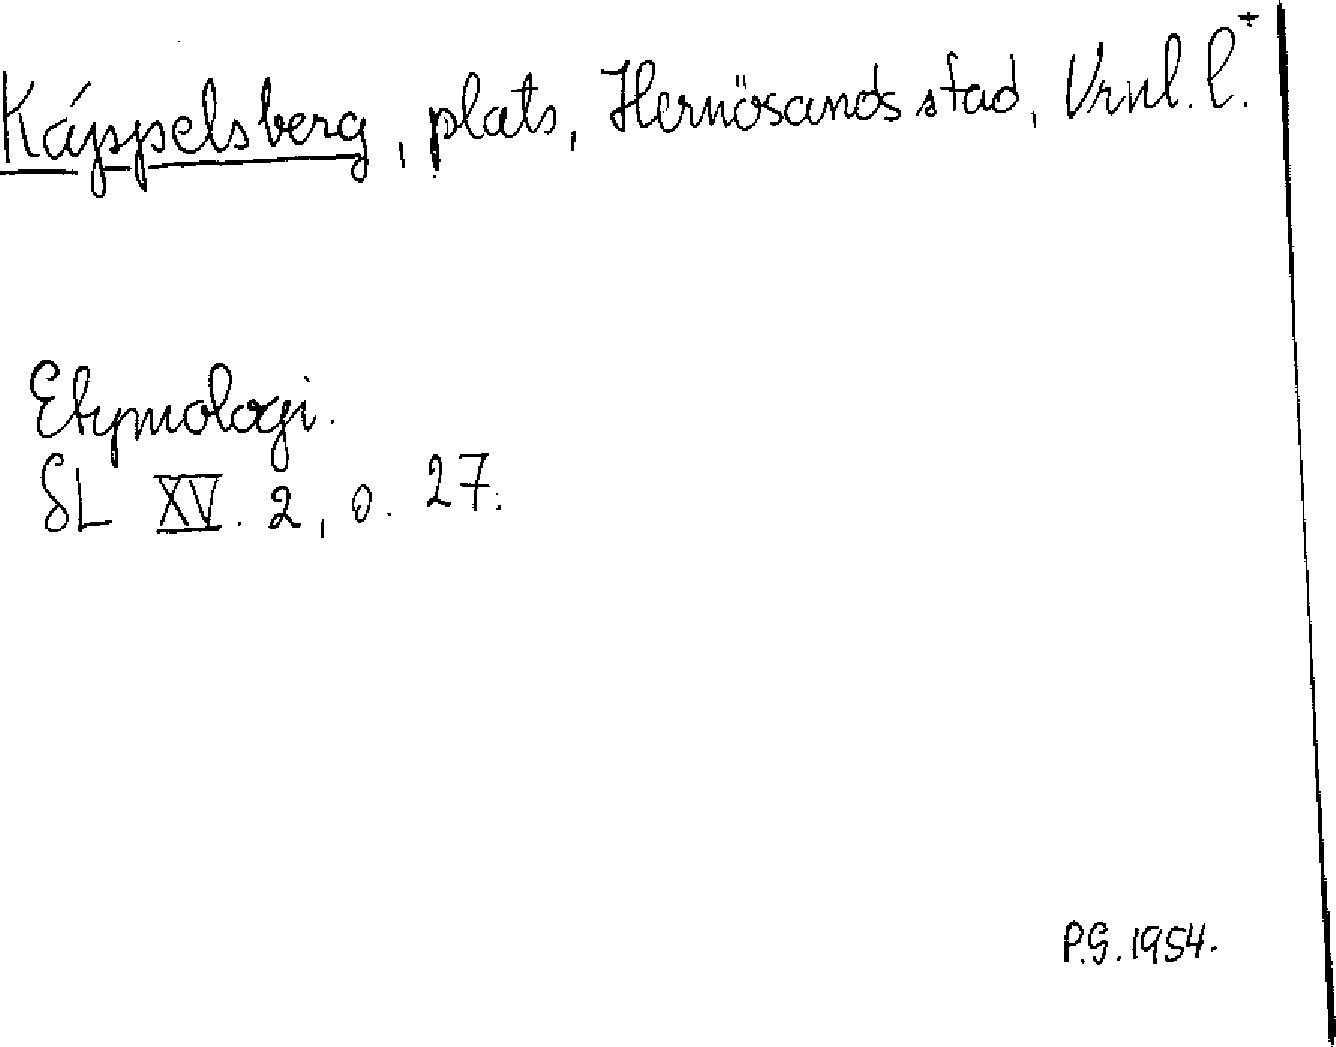 Káppelsberg, plats, Hernösands stad, Vrnl. l. +
Etymologi.
SL XV. 2, s. 27.
P.G. 1954.